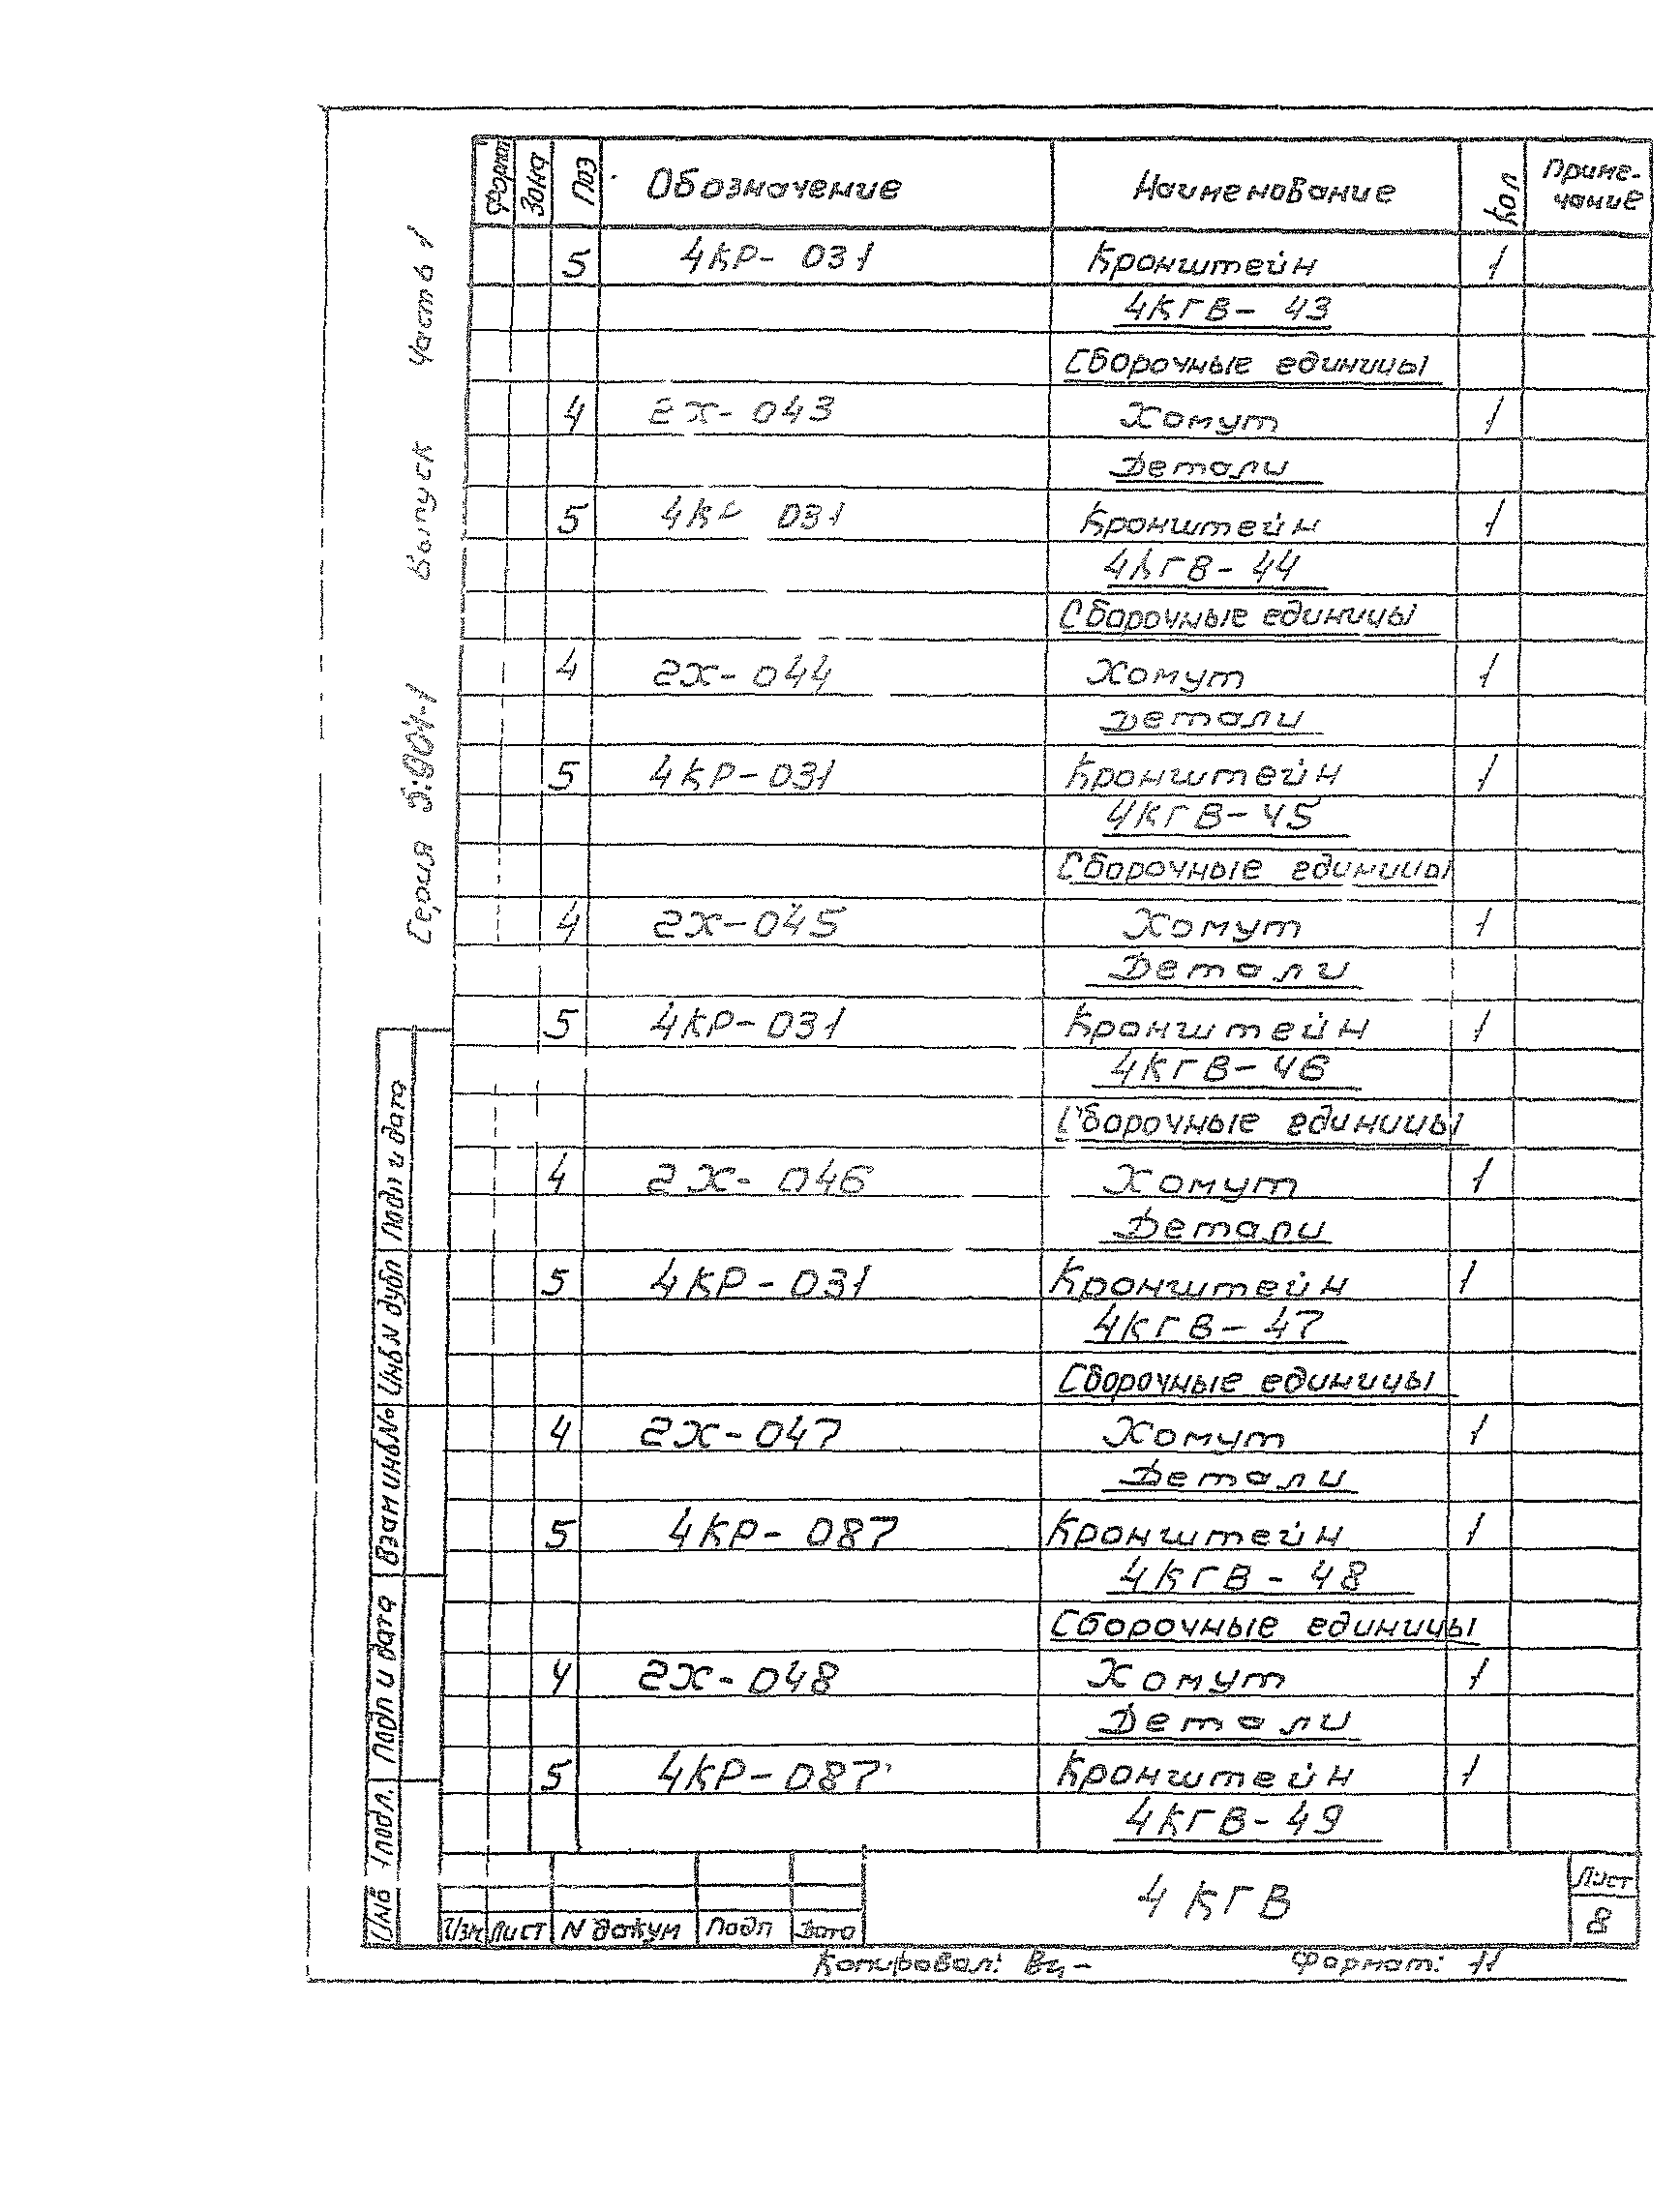 Формат Зона Поз Обозначение Наименование Кол Приме-
чание
5 4КР-031 Кронштейн 1
4КГВ-43
Сборочные единицы
4 2Х-043 Хомут 1
Детали
5 4КР 031 Кронштейн 1
4КГВ-44
Сборочные единицы
4 2Х-044 Хомут 1
Детали
5 4КР-031 Кронштейн 1
4КГВ-45
Сборочные единицы
4 2Х-045 Хомут 1
Детали
5 4КР-031 Кронштейн 1
4КГВ-46
Сборочные единицы
4 2Х-046 Хомут 1
Детали
5 4КР-031 Кронштейн 1
4КГВ-47
Сборочные единицы
4 2Х-047 Хомут 1
Детали
5 4КР-087 Кронштейн 1
4КГВ-48
Сборочные единицы
4 2Х-048 Хомут 1
Детали
5 4КР-087 Кронштейн 1
4КГВ-49
Серия 5.904-1 Выпуск Часть 1
Подп и дата
Инв N дубл
Взам инв №
Подп и дата
Инв подл.
Изм Лист N докум Подп Дата
4 КГВ
Лист
8
Копировал: Формат: 11